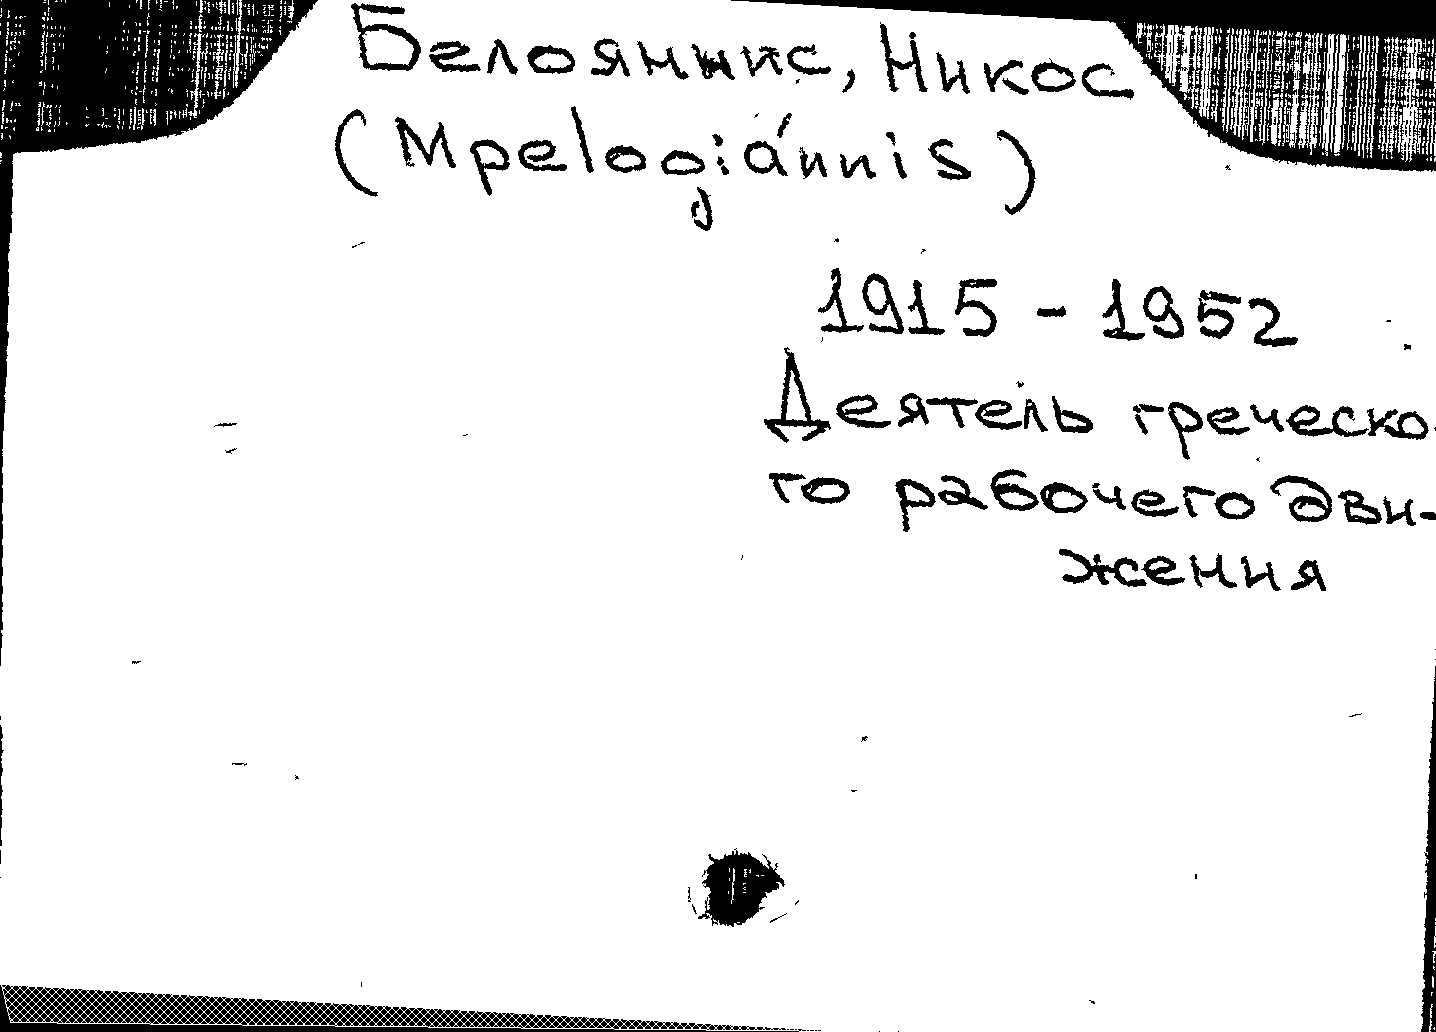 Белояннис, Никос
(Mpelogiánnis)
1915 - 1952
Деятель греческо-
го рабочего дви-
жения